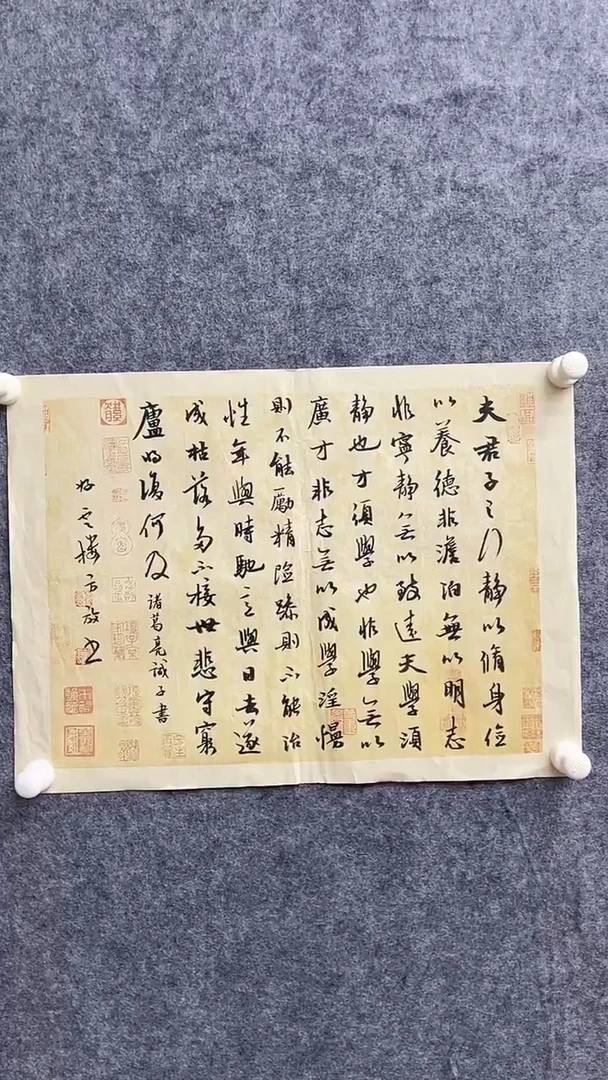 夫君子之行静以脩身俭
以養德非澹泊無以明志
非寧静無以致遠夫學須
静也才須學也非學無以
廣才非志無以成學淫慢
則不能勵精险躁則不能治
性年與時馳意與日去遂
成枯落多不接世悲守窮
廬将復何及
諸葛亮誡子書